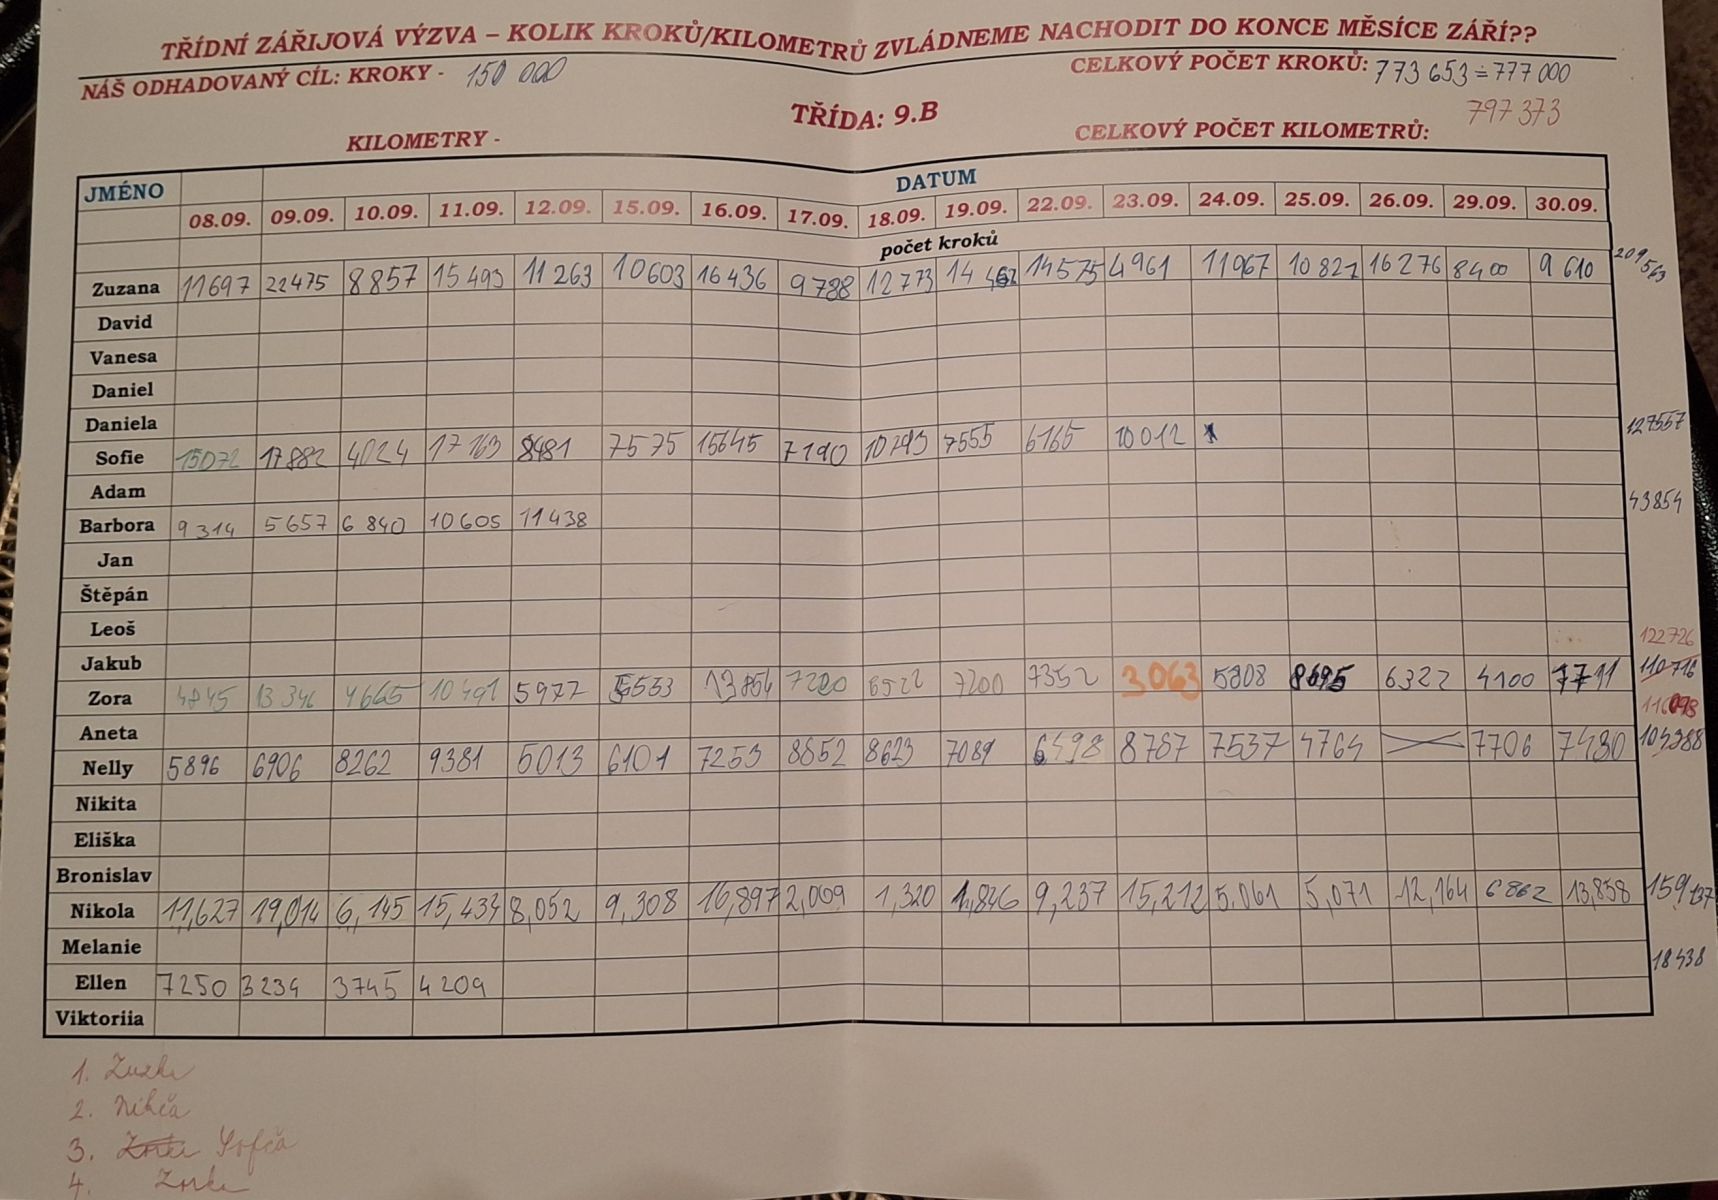 TŘÍDNÍ ZÁŘIJOVÁ VÝZVA – KOLIK KROKŮ/KILOMETRŮ ZVLÁDNEME NACHODIT DO KONCE MĚSÍCE ZÁŘÍ??
NÁŠ ODHADOVANÝ CÍL: KROKY - 150 000 CELKOVÝ POČET KROKŮ: 773 653 ≐ 777 000
797 373
TŘÍDA: 9.B
KILOMETRY - CELKOVÝ POČET KILOMETRŮ:
JMÉNO DATUM
08.09. 09.09. 10.09. 11.09. 12.09. 15.09. 16.09. 17.09. 18.09. 19.09. 22.09. 23.09. 24.09. 25.09. 26.09. 29.09. 30.09.
počet kroků
Zuzana 11697 22475 8857 15493 11263 10603 16436 9788 12773 14575 4961 11967 10821 16276 8400 9610 209563
David
Vanesa
Daniel
Daniela
Sofie 15072 17882 4024 17163 8481 7575 15645 7190 10793 7555 6165 10012 127557
Adam
Barbora 9314 5657 6840 10605 11438 43854
Jan
Štěpán
Leoš
Jakub 122726
Zora 4845 13346 4665 10491 5977 13854 7200 6522 7200 7352 3063 5808 8695 6322 4100 7711 110716
116098
Aneta
Nelly 5896 6906 8262 9381 5013 6101 7253 8652 8623 7089 6498 8767 7537 4764 7706 7480 104388
Nikita
Eliška
Bronislav
Nikola 11,627 19,014 6,145 15,434 8,052 9,308 16,897 2,009 1,320 1,846 9,237 15,212 5.061 5,071 12,164 6862 13,858 159,137
Melanie
Ellen 7250 3234 3745 4209 18438
Viktoriia
1. Zuzka
2. Nikča
3. Sofča
4. Zorka